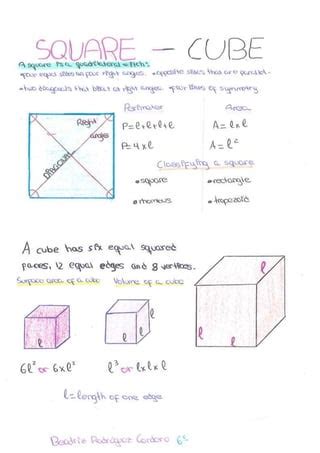 SQUARE — CUBE
A square is a quadrilateral which:
•four equal sides •four right angles. •opposite sides that are parallel.
•two diagonals that bisect at right angles. •four lines of symmetry
Perimeter Area
Right angles
Diagonal
P=l+l+l+l A=l×l
P=4×l A=l²
Classifying a square
•square •rectangle
•rhombus •trapezoid
A cube has six equal squared
faces, 12 equal edges and 8 vertices.
Surface area of a cube Volume of a cube
l l l l
l l l
6l² or 6×l² l³ or l×l×l
l=length of one edge
Beatriz Rodríguez Cordero 6ºC